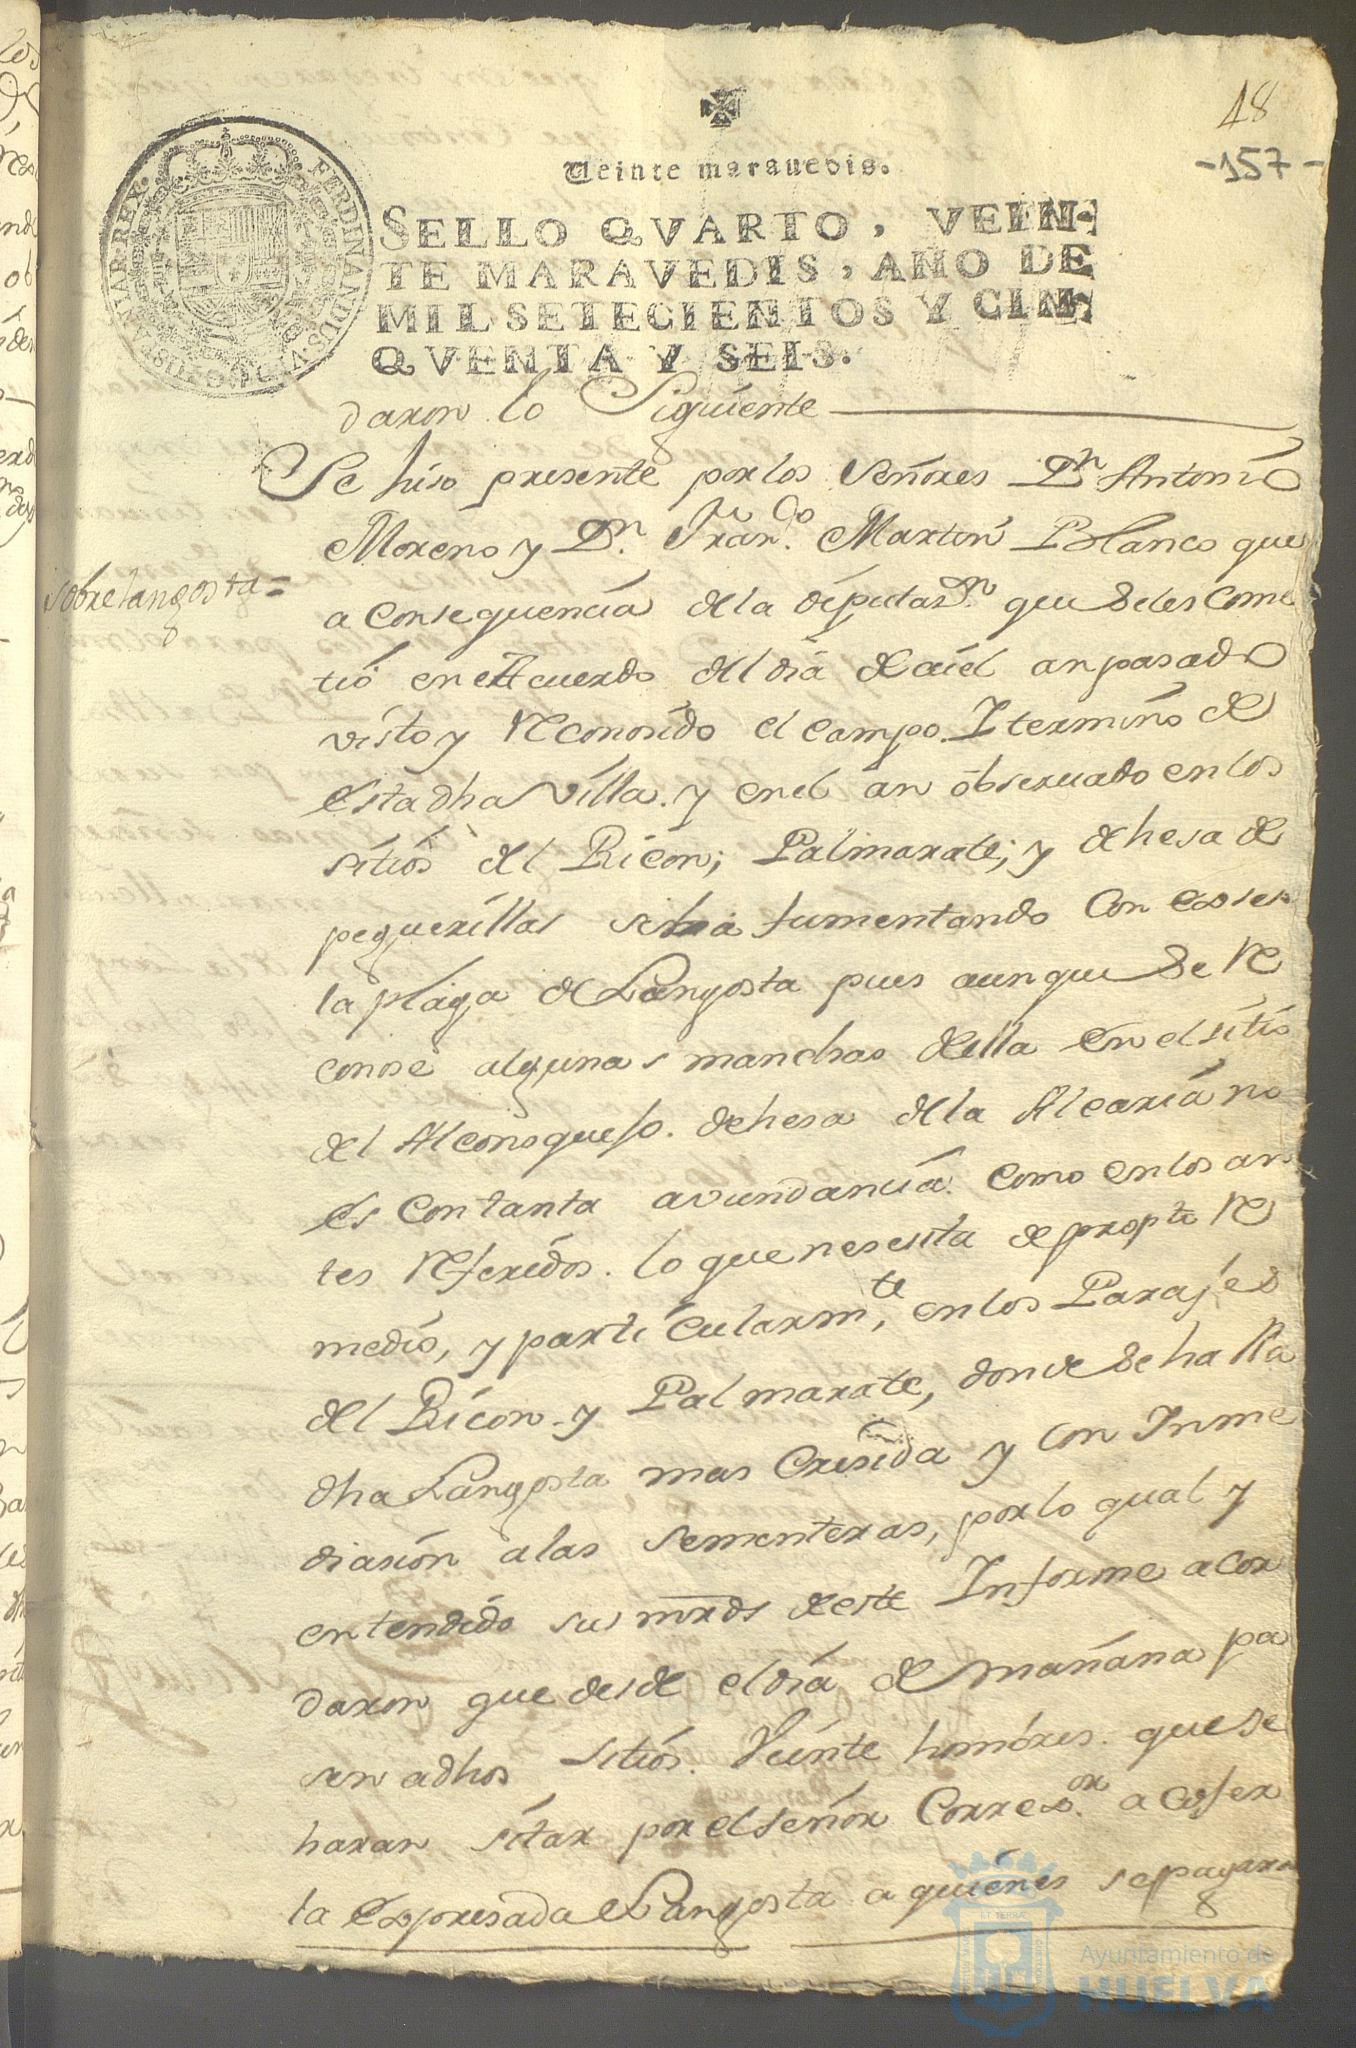 48
-157-
FERDINANDUS VI D G HISPANIAR REX
Veinte marauedis.
SELLO QVARTO, VEIN-
TE MARAVEDIS, AÑO DE
MIL SETECIENTOS Y CIN-
QVENTA Y SEIS.
daron lo Siguiente
Se hiso presente por los Señores Dn Antonio
Moreno y Dn. Franco. Martin Blanco que
sobre langosta=
a consequencia de la diputasn. que se les come
tió en el Acuerdo del dia de aiel an pasado
visto y Reconosido el campo Y termino de
esta dha Villa. y en el an observado en los
sitios del Ricon; Palmarate; y dehesa de
peguerillas se ha fumentando Con exses
la plaga de Langosta pues aunque se Re
conose algunas manchas della en el sitio
del Alconoqueso. dehesa de la Alcaria no
es con tanta avundancia. como en los an
tes Referidos. lo que nesesita de propto Re
medio, y particularmte, en los Parajes
del Ricon y Palmarate, donde se halla
dha Langosta mas Cresida y con Inme
diasion a las sementeras, por lo qual y
entendido sus mrds de este Informe acor
daron que desde el dia de mañana pa
sen a dhos sitios. Veinte hombres. que se
haran sitar por el señor Corregor. a coser
la expresada Langosta a quienes se pagara
Ayuntamiento de
HUELVA